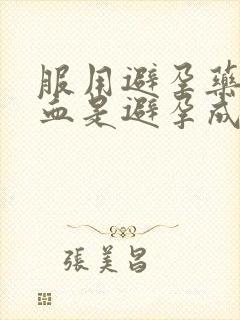 服用避孕药
血是避孕成
张美昌